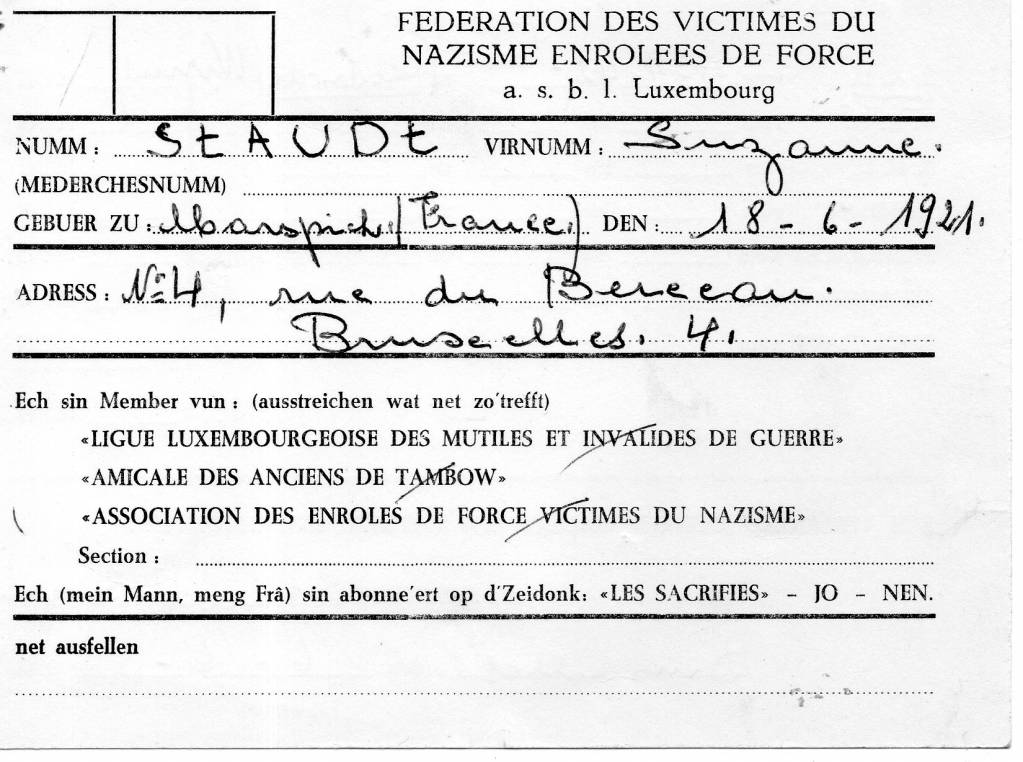 FEDERATION DES VICTIMES DU
NAZISME ENROLEES DE FORCE
a. s. b. l. Luxembourg
NUMM : StAUDt VIRNUMM : Suzanne.
(MEDERCHESNUMM)
GEBUER ZU : Marspich (France) DEN : 18-6-1921.
ADRESS : N° 4, rue du Berceau.
Bruxelles. 4.
Ech sin Member vun : (ausstreichen wat net zo'trefft)
«LIGUE LUXEMBOURGEOISE DES MUTILES ET INVALIDES DE GUERRE»
«AMICALE DES ANCIENS DE TAMBOW»
«ASSOCIATION DES ENROLES DE FORCE VICTIMES DU NAZISME»
Section :
Ech (mein Mann, meng Frâ) sin abonne'ert op d'Zeidonk: «LES SACRIFIES» – JO – NEN.
net ausfellen